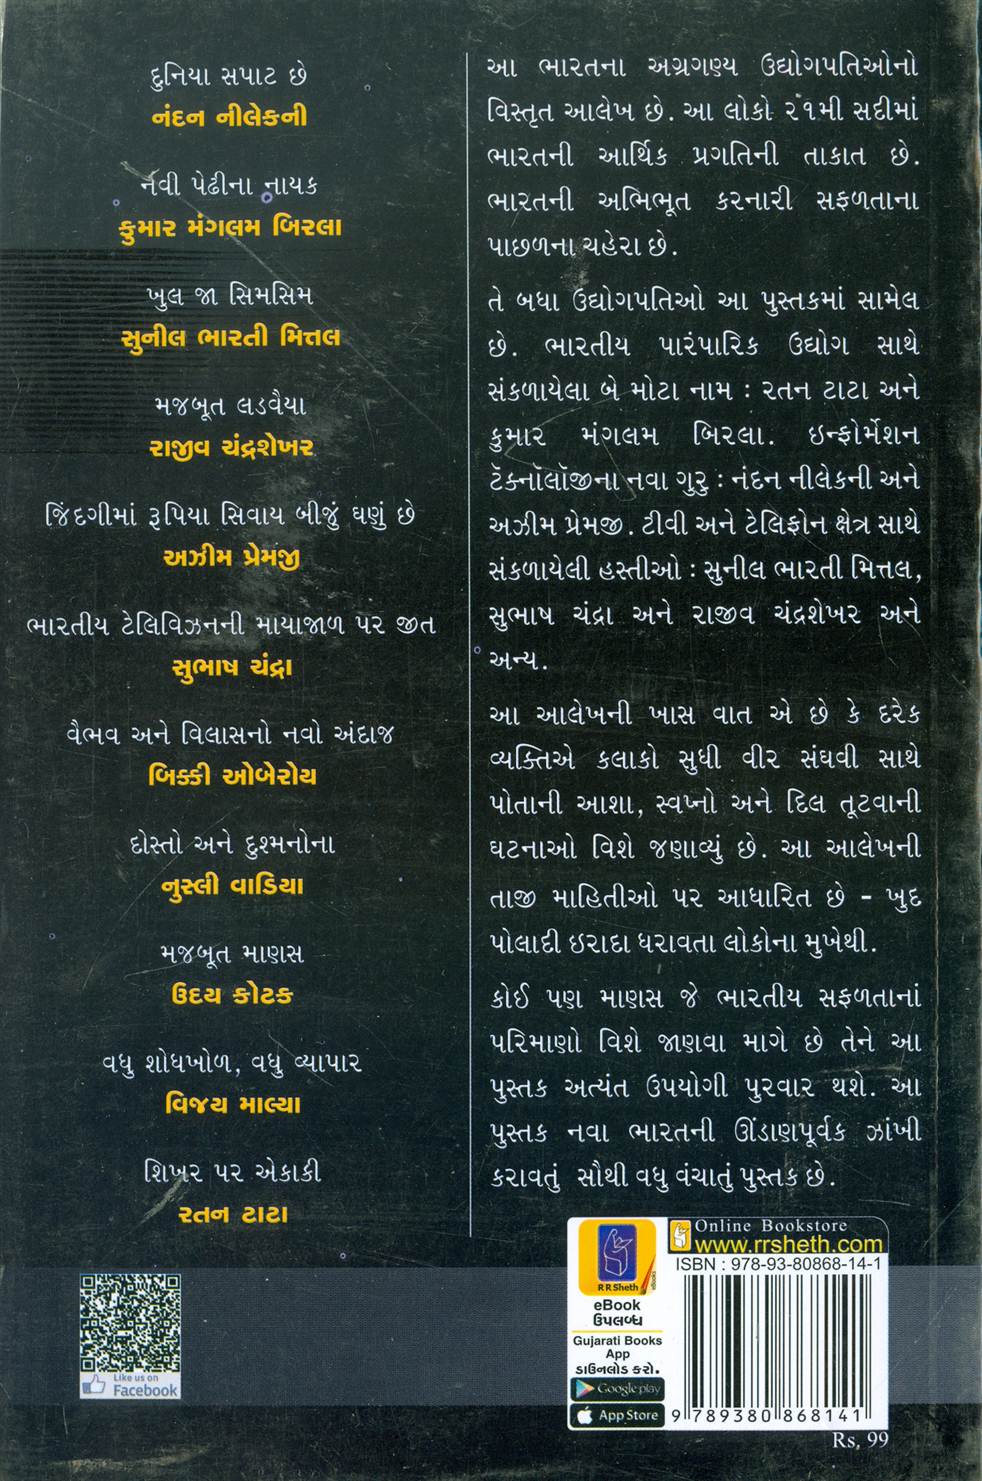 દુનિયા સપાટ છે
નંદન નીલેકની
નવી પેઢીના નાયક
કુમાર મંગલમ બિરલા
ખુલ જા સિમસિમ
સુનીલ ભારતી મિત્તલ
મજબૂત લડવૈયા
રાજીવ ચંદ્રશેખર
જિંદગીમાં રૂપિયા સિવાય બીજું ઘણું છે
અઝીમ પ્રેમજી
ભારતીય ટેલિવિઝનની માયાજાળ પર જીત
સુભાષ ચંદ્રા
વૈભવ અને વિલાસનો નવો અંદાજ
બિક્કી ઓબેરોય
દોસ્તો અને દુશ્મનોના
નુસ્લી વાડિયા
મજબૂત માણસ
ઉદય કોટક
વધુ શોધખોળ, વધુ વ્યાપાર
વિજય માલ્યા
શિખર પર એકાકી
રતન ટાટા
આ ભારતના અગ્રગણ્ય ઉદ્યોગપતિઓનો
વિસ્તૃત આલેખ છે. આ લોકો ૨૧મી સદીમાં
ભારતની આર્થિક પ્રગતિની તાકાત છે.
ભારતની અભિભૂત કરનારી સફળતાના
પાછળના ચહેરા છે.
તે બધા ઉદ્યોગપતિઓ આ પુસ્તકમાં સામેલ
છે. ભારતીય પારંપારિક ઉદ્યોગ સાથે
સંકળાયેલા બે મોટા નામ : રતન ટાટા અને
કુમાર મંગલમ બિરલા. ઇન્ફોર્મેશન
ટૅક્નૉલૉજીના નવા ગુરુ : નંદન નીલેકની અને
અઝીમ પ્રેમજી. ટીવી અને ટેલિફોન ક્ષેત્ર સાથે
સંકળાયેલી હસ્તીઓ : સુનીલ ભારતી મિત્તલ,
સુભાષ ચંદ્રા અને રાજીવ ચંદ્રશેખર અને
અન્ય.
આ આલેખની ખાસ વાત એ છે કે દરેક
વ્યક્તિએ કલાકો સુધી વીર સંઘવી સાથે
પોતાની આશા, સ્વપ્નો અને દિલ તૂટવાની
ઘટનાઓ વિશે જણાવ્યું છે. આ આલેખની
તાજી માહિતીઓ પર આધારિત છે - ખુદ
પોલાદી ઇરાદા ધરાવતા લોકોના મુખેથી.
કોઈ પણ માણસ જે ભારતીય સફળતાનાં
પરિમાણો વિશે જાણવા માગે છે તેને આ
પુસ્તક અત્યંત ઉપયોગી પુરવાર થશે. આ
પુસ્તક નવા ભારતની ઊંડાણપૂર્વક ઝાંખી
કરાવતું સૌથી વધુ વંચાતું પુસ્તક છે.
Like us on
Facebook
R R Sheth
eBooks
eBook
ઉપલબ્ધ
Gujarati Books
App
ડાઉનલોડ કરો.
Google play
App Store
Online Bookstore
www.rrsheth.com
ISBN : 978-93-80868-14-1
9 789380 868141
Rs, 99